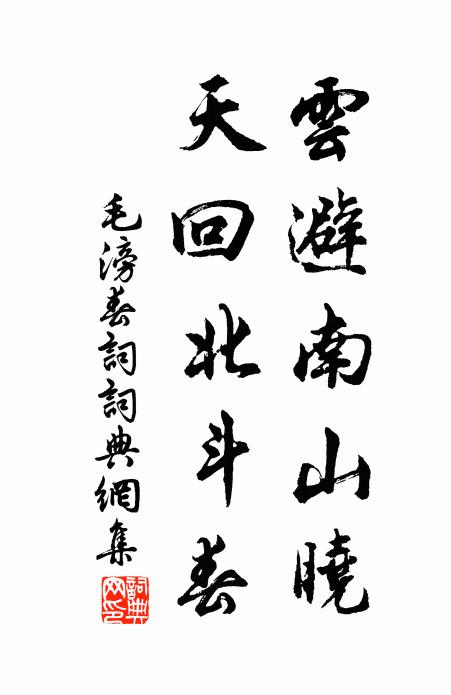 雲避南山曉
天回北斗春
毛滂春詞詞典網集
詞典网印